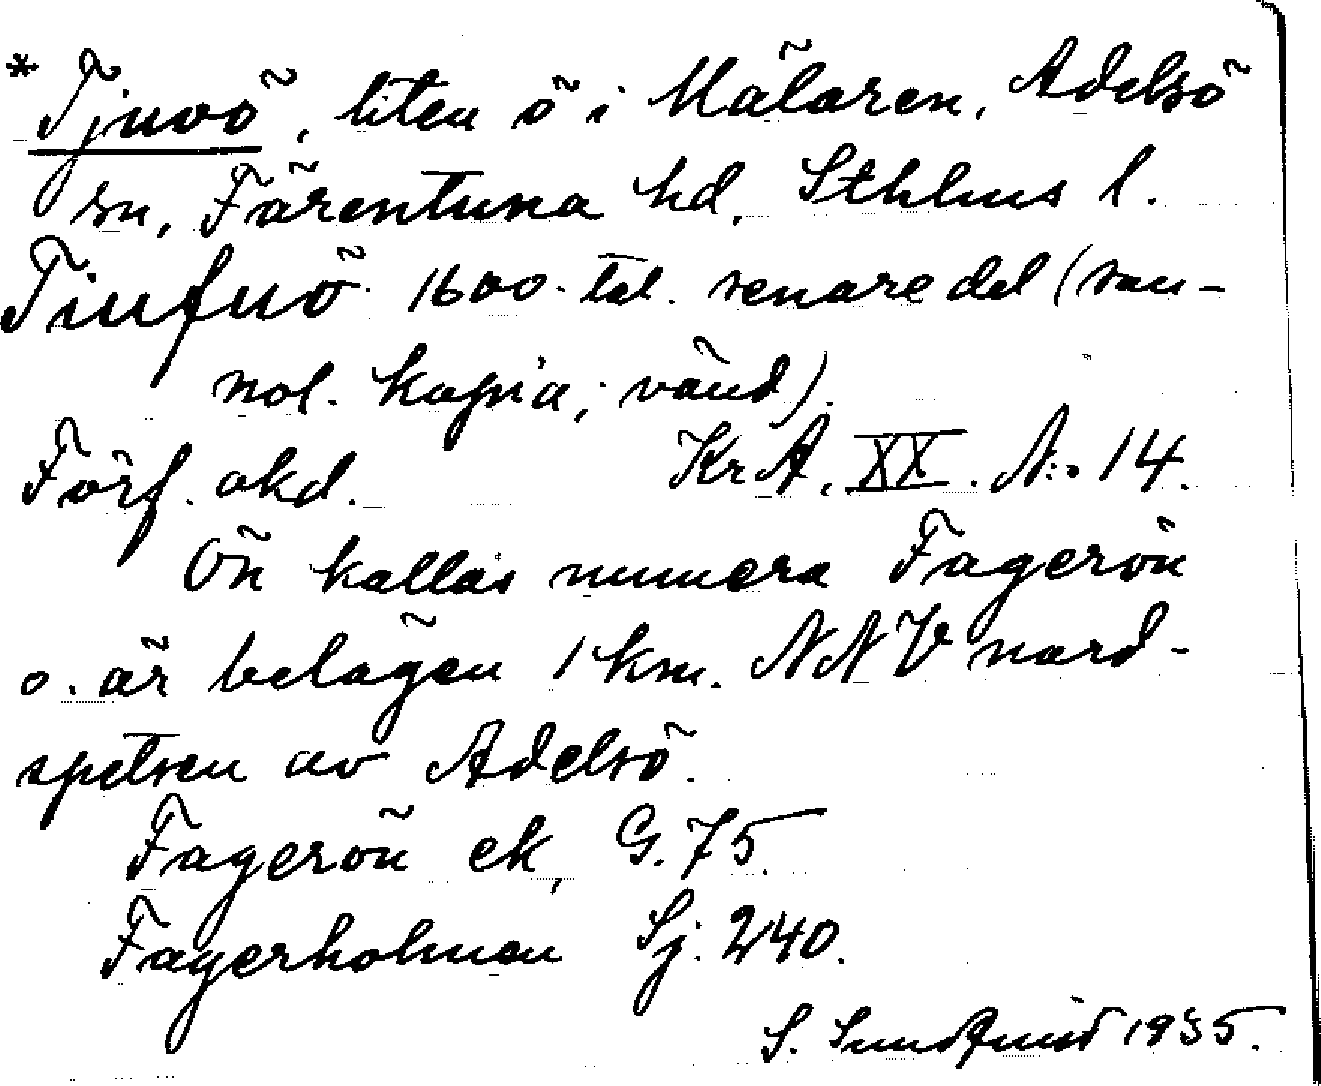 * Tjuvö, liten ö i Mälaren, Adelsö
sn, Färentuna hd, Sthlms l.
Tiufuö 1600-tal. senare del (san-
nol. kopia; vänd).
Förf. okd. KrA, XX. N:o 14.
Ön kallas numera Fagerön
o. är belägen 1 km. NNV nord-
spetsen av Adelsö.
Fagerön ek, G. 75.
Fagerholmen Sj. 240.
S. Sundqvist 1935.